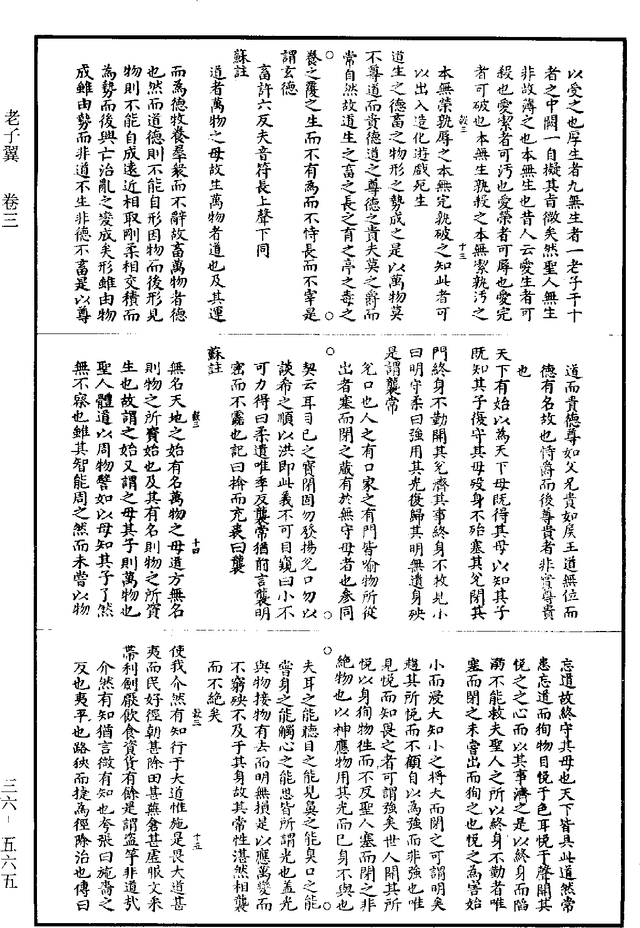 以受之也厚生者九無生者一老子于十
者之中闕一自擬其肯微矣然聖人無生
非故薄之也本無生也昔人云愛生者可
殺也愛潔者可汚也愛榮者可辱也愛完
者可破也本無生孰殺之本無潔孰汚之
敢三 十三
本無榮孰辱之本無完孰破之知此者可
以出入造化遊戲死生
道生之德畜之物形之勢成之是以萬物莫
不尊道而貴德道之尊德之貴夫莫之爵而
常自然故道生之畜之長之育之亭之毒之
養之覆之生而不有為而不恃長而不宰是
謂玄德
畜許六反夫音符長上聲下同
蘇註
道者萬物之母故生萬物者道也及其運
而為德牧養羣衆而不辭故畜萬物者德
也然而道德則不能自形因物而後形見
物則不能自成遠近相取剛柔相交積而
為勢而後興亡治亂之變成矣形雖由物
成雖由勢而非道不生非德不畜是以尊
道而貴德尊如父兄貴如侯王道無位而
德有名故也恃爵而後尊貴者非實尊貴
也
天下有始以為天下母既得其母以知其子
既知其子復守其母殁身不殆塞其兌閉其
門終身不勤開其兌濟其事終身不救見小
曰明守柔曰強用其光復歸其明無遺身殃
是謂襲常
兌口也人之有口家之有門皆喻物所從
出者塞而閉之藏有於無守母者也參同
契云耳目口之寶閉固勿發揚兌口勿以
談希之順以洪即此義不可目窺曰小不
可力得曰柔遺唯季反襲常猶前言襲明
密而不露也記曰揜而充裘曰襲
蘇註
敢三 十四
無名天地之始有名萬物之母道方無名
則物之所資始也及其有名則物之所資
生也故謂之始又謂之母其子則萬物也
聖人體道以周物譬如以母知其子了然
無不察也雖其智能周之然而未嘗以物
忘道故終守其母也天下皆具此道然常
患忘道而徇物目悅于色耳悅于聲開其
悅之之心而以其事濟之是以終身而陷
溺不能救夫聖人之所以終身不勤者唯
塞而閉之未嘗出而徇之也悅之為害始
小而浸大知小之將大而閉之可謂明矣
趨其所悅而不顧自以為強而非強也唯
見悅而知畏之者可謂強矣世人開其所
悅以身徇物徃而不反聖人塞而閉之非
絶物也以神應物用其光而已身不與也
夫耳之能聽目之能見鼻之能臭口之能
嘗身之能觸心之能思皆所謂光也蓋光
與物接物有去而明無損是以應萬變而
不窮殃不及于其身故其常性湛然相襲
而不絶矣
敢三 十五
使我介然有知行于大道惟施是畏大道甚
夷而民好徑朝甚除田甚蕪倉甚虛服文采
帶利劍厭飲食資貨有餘是謂盜竽非道哉
介然有知猶言微有知也夸張曰施齋之
反也夷平也路狹而捷為徑除治也傳曰
老子翼 卷三
三六－五六五